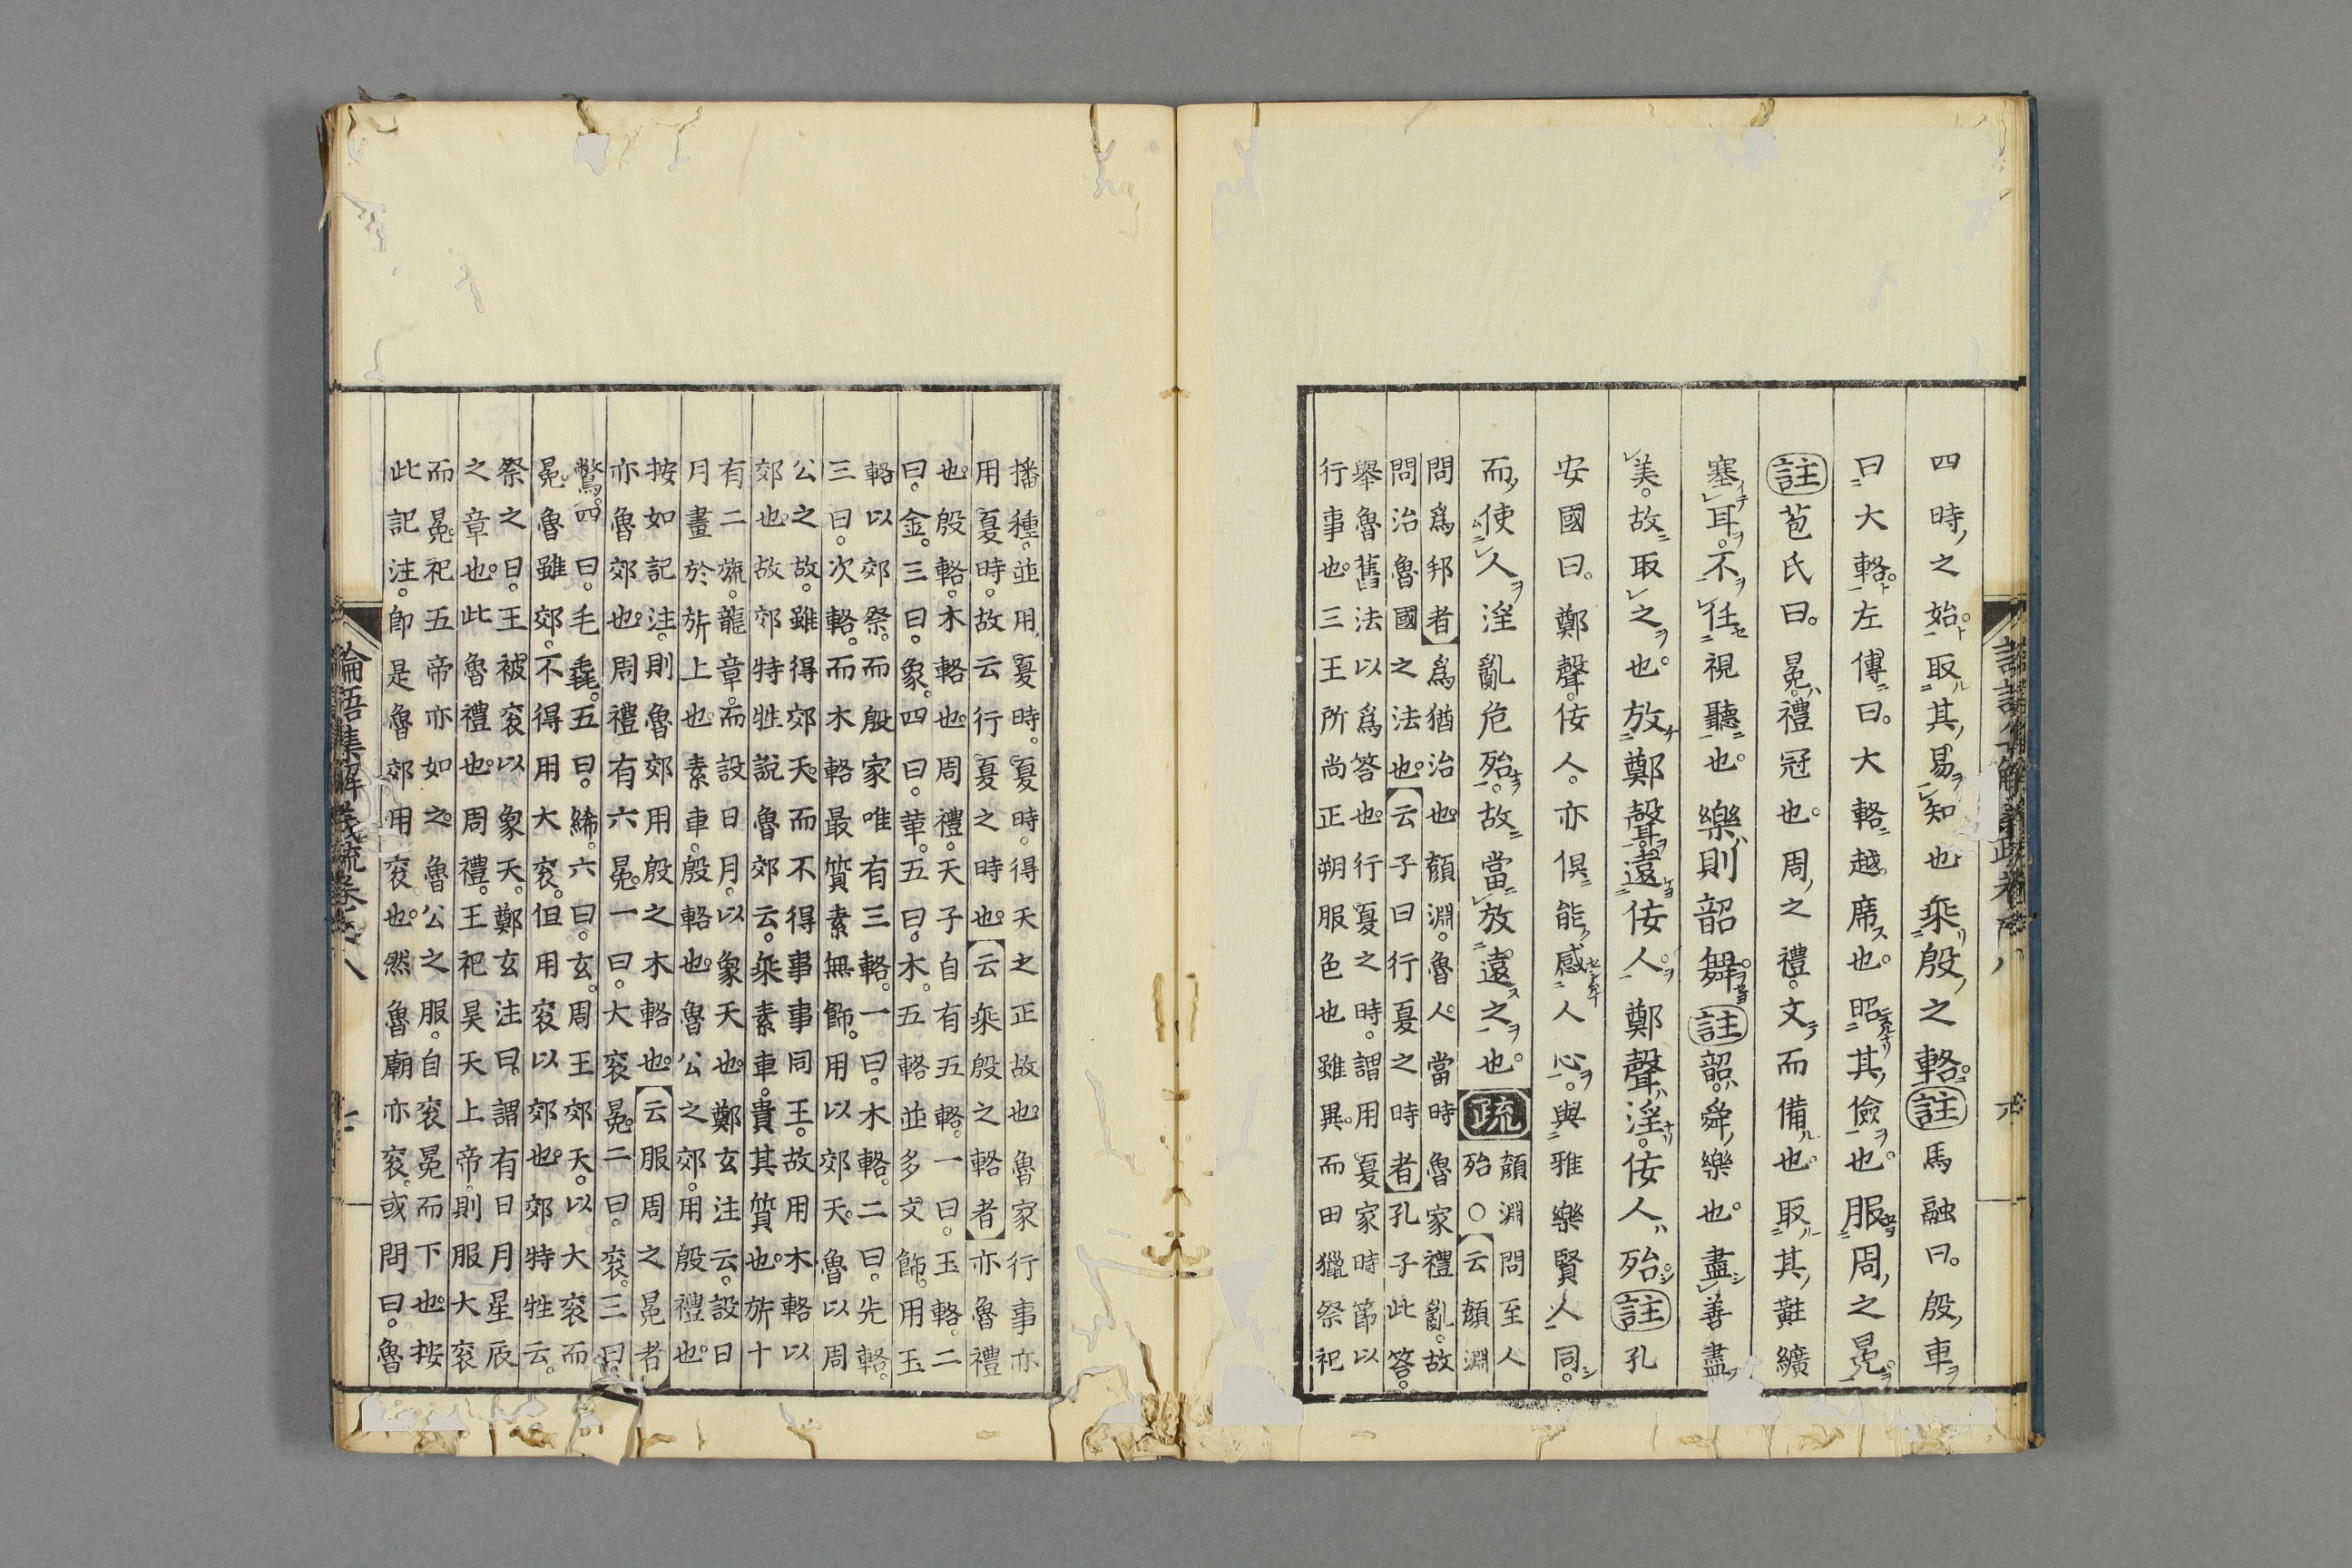 四時之始。取其易知也乗殷之輅。註馬融曰。殷車
曰大輅。左傳曰。大輅越席也。昭其儉也。服周之冕。
註苞氏曰。冕禮冠也。周之禮。文而備也。取其黈纊
塞耳。不任視聽也。樂則韶舞。註韶舜樂也。盡善盡
美。故取之也。放鄭聲。遠佞人。鄭聲淫。佞人殆。註孔
安國曰。鄭聲佞人。亦俱能感人心。與雅樂賢人同。
而使人淫亂危殆。故當放遠之也。疏顔淵問至人
殆○云顔淵
問爲邦者爲猶治也。顔淵。魯人。當時魯家禮亂。故
問治魯國之法也。云子曰行夏之時者孔子此答。
舉魯舊法以爲答也。行夏之時。謂用夏家時節以
行事也。三王所尚正朔服色也雖異。而田獵祭祀
播種。並用夏時。夏時。得天之正故也。魯家行事亦
用夏時。故云行夏之時也。云乗殷之輅者亦魯禮
也。殷輅。木輅也。周禮。天子自有五輅。一曰。玉輅。二
曰。金。三曰。象。四曰。革。五曰。木。五輅並多文飾。用玉
輅以郊祭。而殷家唯有三輅。一曰。木輅。二曰。先輅。
三曰。次輅。而木輅最質素無飾。用以郊天。魯以周
公之故。雖得郊天。而不得事事同王。故用木輅以
郊也。故郊特牲說魯郊云。乗素車。貴其質也。旂十
有二旒。龍章。而設日月。以象天也。鄭玄注云。設日
月畫於旂上也。素車。殷輅也。魯公之郊。用殷禮也。
按如記注。則魯郊用殷之木輅也。云服周之冕者
亦魯郊也。周禮有六冕。一曰。大衮冕。二曰。衮。三曰。
鷩。四曰。毛毳。五曰。絺。六曰。玄。周王郊天。以大衮而
冕。魯雖郊。不得用大衮。但用衮以郊也。郊特牲云。
祭之日。王被衮。以象天。鄭玄注曰。謂有日月星辰
之章也。此魯禮也。周禮。王祀昊天上帝。則服大衮
而冕。祀五帝亦如之。魯公之服。自衮冕而下也。按
此記注。即是魯郊用衮也。然魯廟亦衮。或問曰。魯